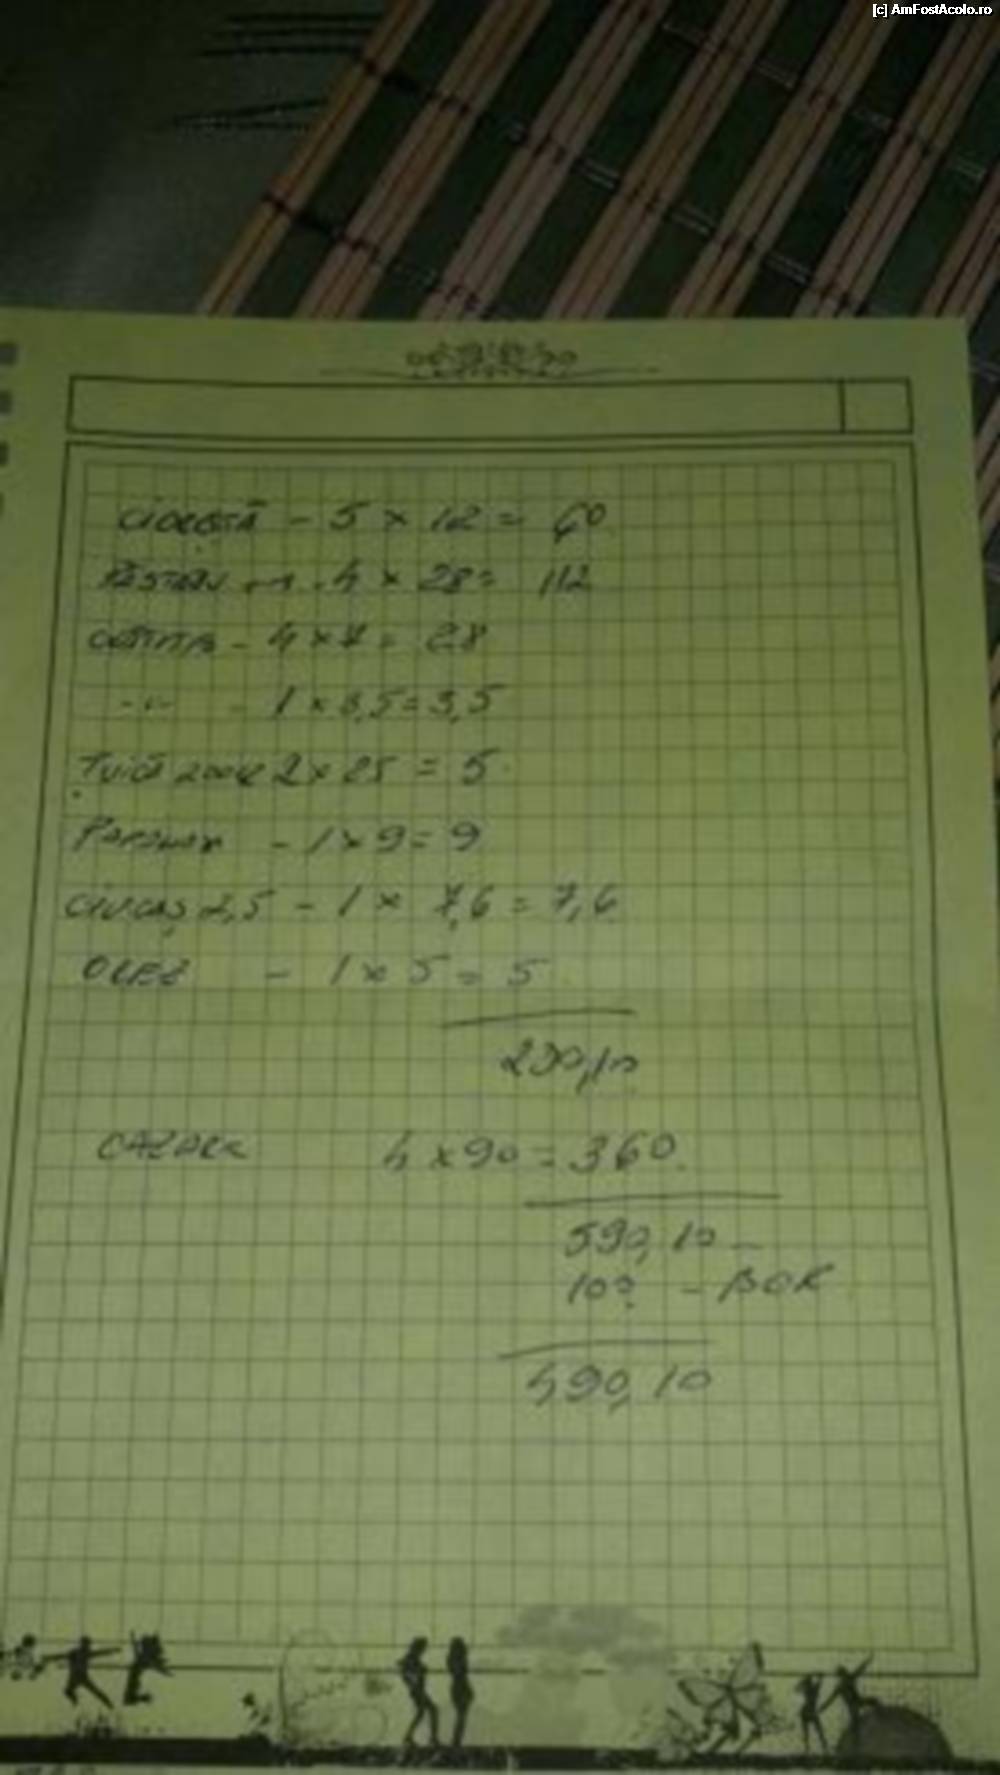 [c] AmFostAcolo.ro
CIORBĂ - 5 x 12 = 60
PĂSTRĂV - 4 x 28 = 112
- 4 x 7 = 28
-"- - 1 x 3,5 = 3,5
Țuică 2 x 25 = 5
- 1 x 9 = 9
CIUCAȘ 2,5 - 1 x 7,6 = 7,6
- 1 x 5 = 5
230,10
CAZARE 4 x 90 = 360
590,10 -
100 -
490,10